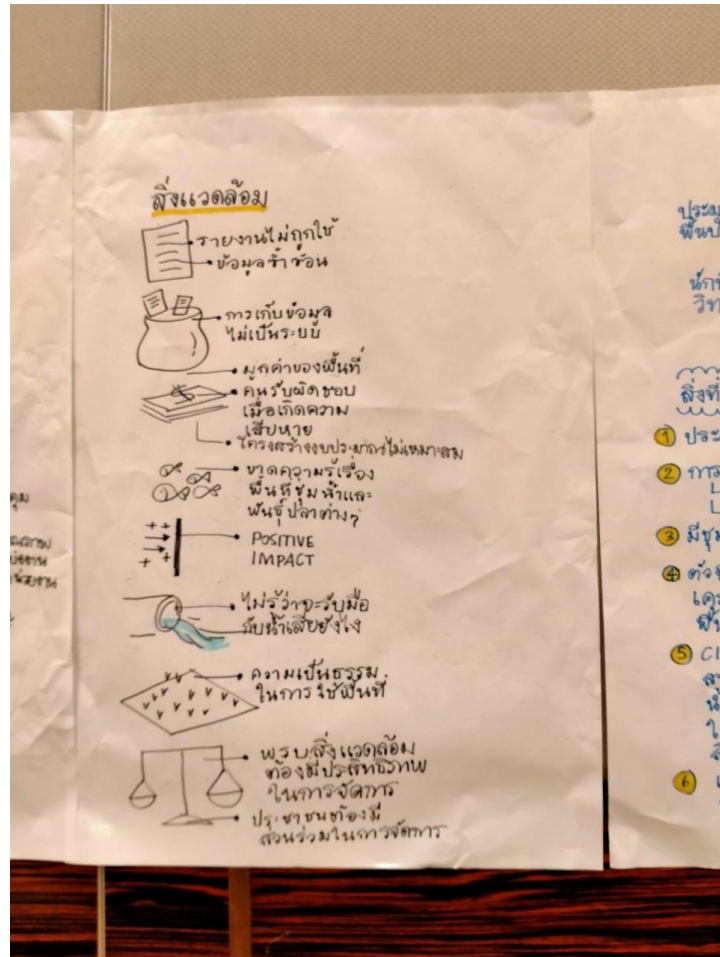 สิ่งแวดล้อม
• รายงานไม่ถูกใช้
• ข้อมูลซ้ำซ้อน
• การเก็บข้อมูล
ไม่เป็นระบบ
• มูลค่าของพื้นที่
• คนรับผิดชอบ
เมื่อเกิดความ
เสียหาย
• โครงสร้างงบประมาณไม่เหมาะสม
• ขาดความรู้เรื่อง
พื้นที่ชุ่มน้ำและ
พันธุ์ปลาต่างๆ
• POSITIVE
IMPACT
• ไม่รู้ว่าจะรับมือ
กับน้ำเสียยังไง
• ความเป็นธรรม
ในการใช้พื้นที่
• พรบสิ่งแวดล้อม
ต้องมีประสิทธิภาพ
ในการจัดการ
• ประชาชนต้องมี
ส่วนร่วมในการจัดการ
สิ่งที่
1
2
3 มีชุม
4
5
6